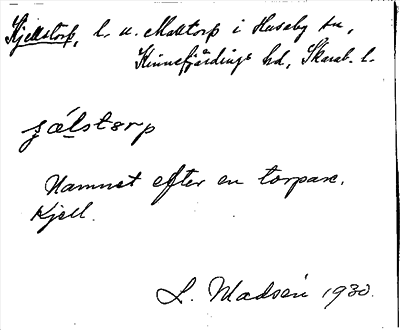 Kjellstorp, l. u. Malltorp i Husaby sn,
Kinnefjärdings hd, Skarab. l.
ʃælstɔrp
Namnet efter en torpare.
Kjell.
L. Madsén 1930.